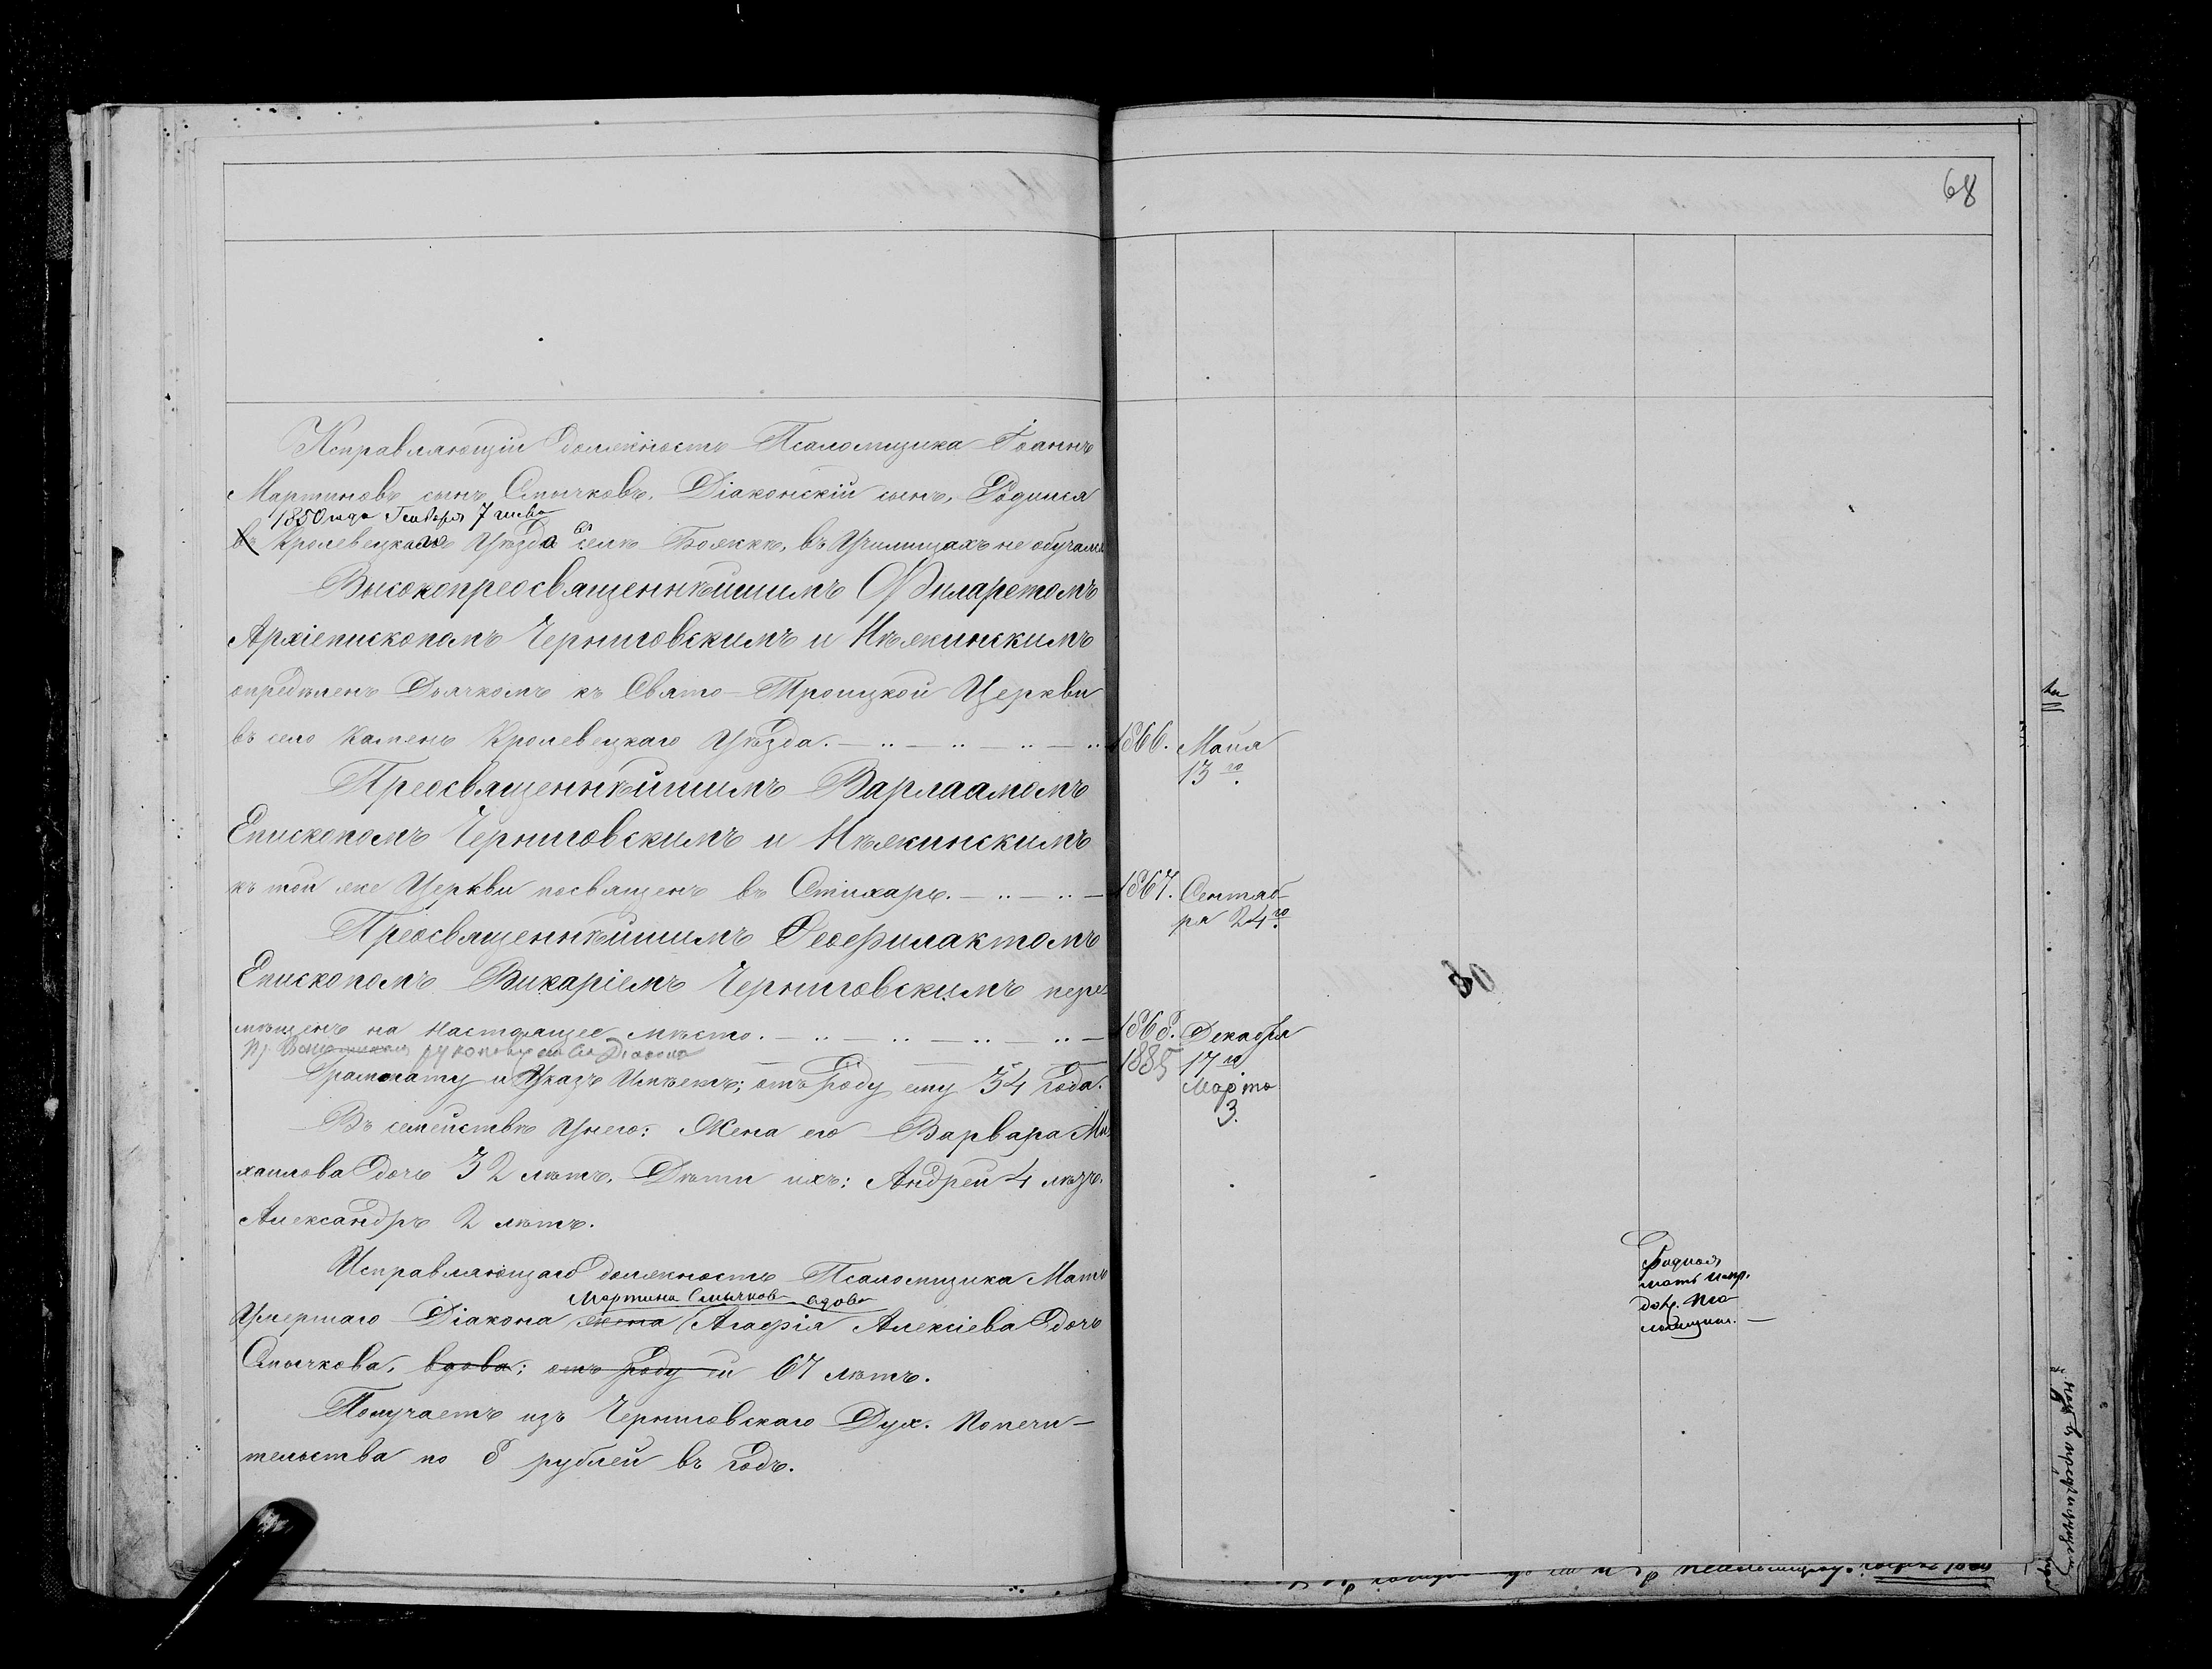 68
Исправляющій должность Псаломщика Іоаннъ
Мартиновъ сынъ Смычковъ, Діаконскій сынъ, Родился
1850 года Генваря 7 числа
въ Кролевецкаго Уѣзда въ селѣ Божкѣ, въ Училищахъ не обучался
Высокопреосвященнѣйшимъ Филаретомъ
Архіепископомъ Черниговскимъ и Нѣжинскимъ
опредѣленъ Дьячкомъ къ Свято-Троицкой Церкви
въ село Камень Кролевецкаго Уѣзда. 1866. Маія
13го.
Преосвященнѣйшимъ Варлаамомъ
Епископомъ Черниговскимъ и Нѣжинскимъ
къ той же Церкви посвященъ въ Стихарь. 1867. Сентяб-
ря 24го.
Преосвященнѣйшимъ Феофилактомъ
Епископомъ Викаріемъ Черниговскимъ пере-
мѣщенъ на настоящее мѣсто. 1868. Декабря
17го
рукоположенъ Діакона 1885 Марта
3.
Грамматту и Указъ Имѣетъ; отъ роду ему 34 года.
Въ семействѣ Унего: Жена его Варвара Ми-
хаилова дочь 32 лѣтъ. Дѣти ихъ: Андрей 4 лѣтъ.
Александръ 2 лѣтъ.
Исправляющаго должность Псаломщика Мать
Мартина Смычкова вдова
Умершаго Діакона жена Агафія Алексіева дочь
Смычкова, вдова; отъ роду ей 67 лѣтъ.
Родная
мать испр.
долж. пса-
ломщик.
Получаетъ изъ Черниговскаго Дух. Попечи-
тельства по 8 рублей въ годъ.